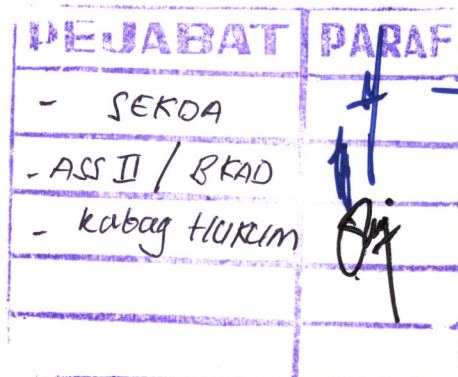 PEJABAT PARAF
- SEKDA
- ASS II / BKAD
- Kabag HUKUM